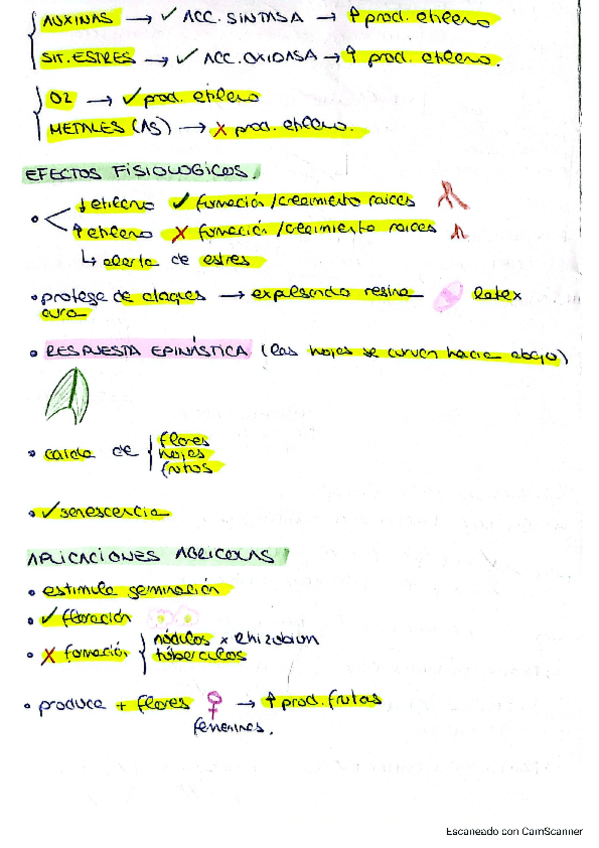 AUXINAS → ✓ ACC. SINTASA → ↑ prod. etileno
SIT. ESTRES → ✓ ACC. OXIDASA → ↑ prod. etileno.
O2 → ✓ prod. etileno
METALES (AS) → X prod. etileno.
EFECTOS FISIOLOGICOS.
• ↓ etileno ✓ formación/crecimiento raices
↑ etileno X formación/crecimiento raices
↳ alerta de estres
• protege de ataques → expulsando resina latex
cura
• RESPUESTA EPINÁSTICA (las hojas se curvan hacia abajo)
• caida de { flores
hojas
frutos
• ✓ senescencia
APLICACIONES AGRICOLAS
• estimula germinación
• ✓ floración
• X formación { nódulos x Rhizobium
túberculos
• produce + flores ♀ → ↑ prod. frutos
femeninas.
Escaneado con CamScanner